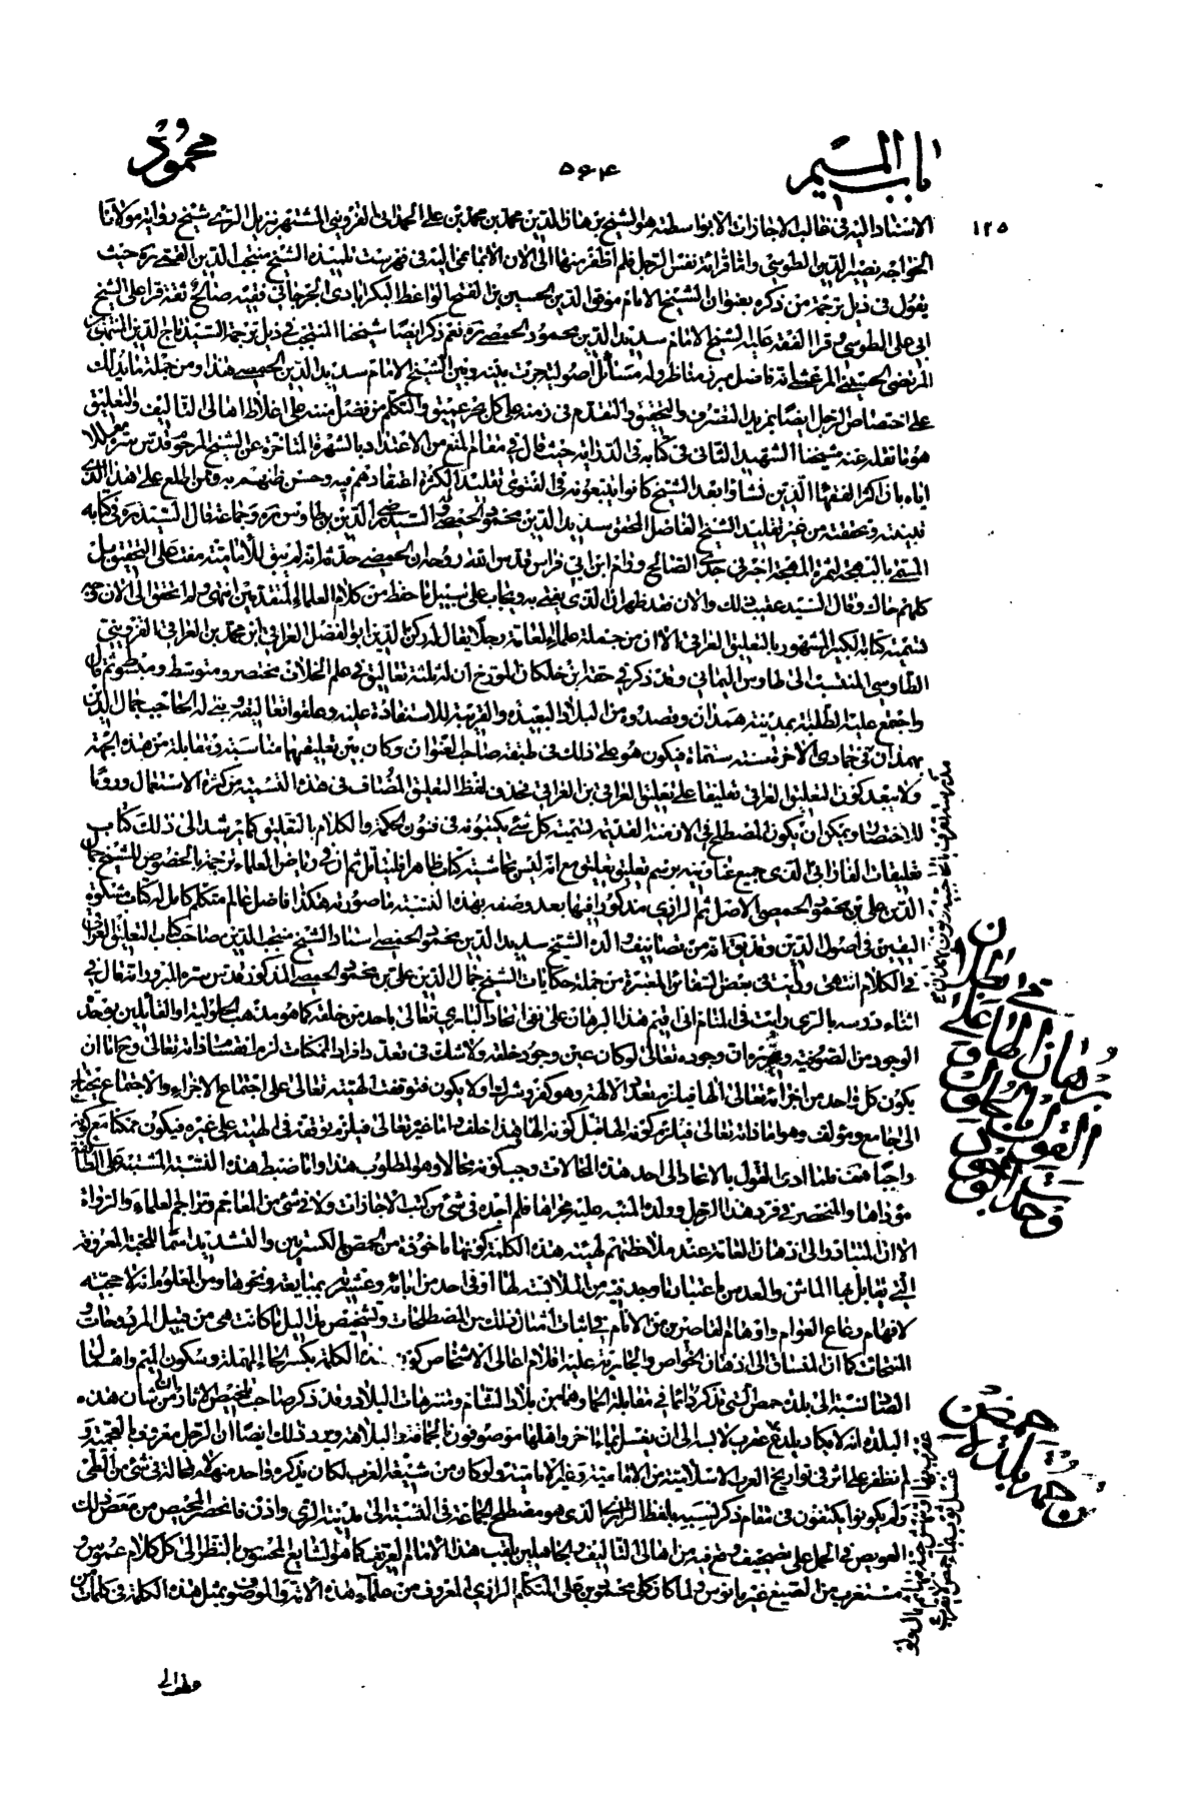 باب الميم
٥٦٤
محمود
١٢٥
الاسناد اليه في قالب الاجازات الا بواسطته هو الشيخ برهان الدين محمد بن محمد بن علي الحمداني القزويني المشتهر بنزيل الري شيخ رواية مولانا
الخواجه نصير الدين الطوسي واما قرائة نفس الرجل فلم اظفر منها الى الان الا بما في فهرست تلميذه الشيخ منتجب الدين القمي ره حيث
يقول في ذيل ترجمة من ذكره بعنوان الشيخ الامام موفق الدين الحسين بن الفتح الواعظ البكرابادي الجرجاني فقيه صالح ثقة قرا على الشيخ
ابي علي الطوسي وقرا الفقه عليه الشيخ الامام سديد الدين محمود الحمصي ره نعم ذكر ايضا شيخنا المنتجب في ذيل ترجمة السيد تاج الدين المنتهى بن
المرتضى الحسيني المرعشي انه فاضل مبرز مناظر وله مسائل اصولية جرت بينه وبين الشيخ الامام سديد الدين الحمصي هذا ومن جملة ما يدلك
على اختصاص الرجل ايضا بمزيد التصرف والتحقيق والتقدم في زمنه على كل بحر عميق والتكلم من فضل منه على اغلاط اهالي التاليف والتعليق
هو ما نقله عنه شيخنا الشهيد الثاني في كتابه في الدراية حيث قال في مقام المنع من الاعتداد بالشهرة المتاخرة عن الشيخ المرحوم قدس سره معللا
اياه بان اكثر الفقهاء الذين نشاوا بعد الشيخ كانوا يتبعونه في الفتوى تقليدا لكثرة اعتقادهم فيه وحسن ظنهم به وممن اطلع على هذا الذي
تبينته وتحققته من غير تقليد الشيخ الفاضل المحقق سديد الدين محمود الحمصي والسيد رضي الدين بن طاوس ره وجماعة قال السيد ره في كتابه
المسمى بالبهجة لثمرة المهجة اخبرني جدي الصالح ورام ابن ابي فراس قدس الله روحه ان الحمصي حدثه انه لم يبق للامامية مفت على التحقيق بل
كلهم حاك وقال السيد عقيب ذلك والان فقد ظهر ان الذي يفتى به ويجاب على سبيل ما حفظ من كلام العلماء المتقدمين انتهى ولم اتحقق الى الان وجه
تسمية كتابه الكبير المشهور بالتعليق العراقي الا ان من جملة علماء العامة رجلا يقال له ركن الدين ابو الفضل العراقي ابن محمد بن العراقي القزويني
الطاوسي المنتسب الى طاوس اليماني وقد ذكر في حقه ابن خلكان المورخ ان له ثلثة تعاليق في علم الخلاف مختصر ومتوسط ومبسوط ثم قال
واجتمع عليه الطلبة بمدينة همدان وقصدوه من البلاد البعيدة والقريبة للاستفادة عليه وعلقوا تعاليقه وبنى له الحاجب جمال الدين
بهمدان في جمادى الاخرة سنة ستمائة فيكون هو على ذلك في طبقة صاحب العنوان وكان بين تعليقيهما مناسبة ومقابلة من هذه الجهة
ولا يبعد كون التعليق العراقي تعليقا على تعليق العراقي بن العراقي فحذف لفظ التعليق المضاف في هذه التسمية من كثرة الاستعمال وروما
للاختصار ويمكن ان يكون المصطلح في الازمنة القديمة تسمية كل شيء يكتبونه في فنون الحكمة والكلام بالتعليق كما يرشد الى ذلك كتاب
تعليقات الفارابي الذي جميع عناوينه برسم تعليق تعليق مع انه ليس بحاشية كتاب ظاهر فليتامل ثم ان في رياض العلماء ترجمة بالخصوص للشيخ جمال
الدين علي بن محمود الحمصي الاصل ثم الرازي مذكورا فيها بعد وصفه بهذه النسبة ما صورته هكذا فاضل عالم متكلم كامل له كتاب مشكوة
اليقين في اصول الدين وقد يق انه من تصانيف والده الشيخ سديد الدين محمود الحمصي استاد الشيخ منتجب الدين صاحب كتاب التعليق العراقي
في الكلام انتهى ورايت في بعض السفائن المعتبرة من جملة حكايات الشيخ جمال الدين علي بن محمود الحمصي المذكور قدس سره المبرور انه قال في
اثناء درسه بالري رايت في المنام اني اقيم هذا البرهان على نفي اتحاد الباري تعالى باحد من خلقه كما هو مذهب الحلولية والقائلين بوحدة
الوجود من الصوفية وغيره ان وجوده تعالى لو كان عين وجود خلقه ولا شك في تعدد افراد الممكنات لزم انقسام ذاته تعالى وح اما ان
يكون كل واحد من اجزائه تعالى الها فيلزم تعدد الالهة وهو كفر وشرك او لا يكون فتوقفت الهيته تعالى على اجتماع الاجزاء والاجتماع يحتاج
الى جامع ومؤلف وهو اما ذاته تعالى فيلزم كونه الها قبل كونه الها هذا خلف واما غيره تعالى فيلزم توقفه في الهيته على غيره فيكون ممكنا مع كونه
واجبا هف فلما ادى القول بالاتحاد الى احد هذه المحالات وجب كونه محالا وهو المطلوب هذا واما ضبط هذه النسبة المشتبهة على الطائفة
مؤداها والمنحصر في فرد هذا الرجل وولده المنبه عليه مجراها فلم اجده في شيء من كتب الاجازات ولا في شيء من المعاجم وتراجم العلماء والرواة
الا ان المتبادر الى اذهان العامة عند ملاحظتهم لهيئة هذه الكلمة كونها ماخوذة من الحمص بالكسرتين والتشديد اسما للحبة المعروفة
التي يقابل بها الماش والعدس باعتبار ما وجد فيه من الملابسة لها او في احد من ابائه وعشيرته بمبايعة ونحوها ومن المعلوم انه لا حجية
لافهام رعاع العوام واوهام القاصرين من الانام في اثبات امثال ذلك من المصطلحات وتشخيص مداليل ما كانت هي من قبيل المرموزات و
المنحات كما ان المنساق الى اذهان الخواص والجارية عليه اقلام اعالي الاشخاص كون هذه الكلمة بكسر الحاء المهملة وسكون الميم واهمال
الصاد نسبة الى بلدة حمص التي تذكر دائما في مقابلة الحماة وهما من بلاد الشام ومتنزهات البلاد وقد ذكر صاحب تلخيص الاثار ان من شان هذه
البلدة انه لا يكاد يلدغ عقرب لابسه الى ان يغسل بماء اخر واهلها موصوفون بالحماقة والبلاهة ويرد ذلك ايضا ان الرجل معروف بالعجمية و
لم نظفر على اثر في تواريخ العرب الاسلامية من الامامية وغير الامامية ولو كان من شيعة العرب لكان يذكره واحد منهم لا محالة في شيء من الطي
ولم يكونوا يكتفون في مقام ذكر نسبه بلفظ الرازي الذي هو مصطلح الجماعة في النسبة الى مدينة الري واذن فانحصر المحيص من معض ذلك
العويص في الحمل على تصحيف وتحريف من اهالي التاليف والجاهلين بلقب هذا الامام العريف كما هو الشايع المحسوس بالنظر الى كل كلام غموس و
مستغرب من الصيغ غير مانوس ولما كان كل محمود بن علي المتكلم الرازي المعروف من علماء هذه الاثر والموصوف بمثل هذه الكلمة في كلمات من
في بطلان
برهان اخر على
القول بالحلول و
وحدة الوجود
حمص
من حمه بلد